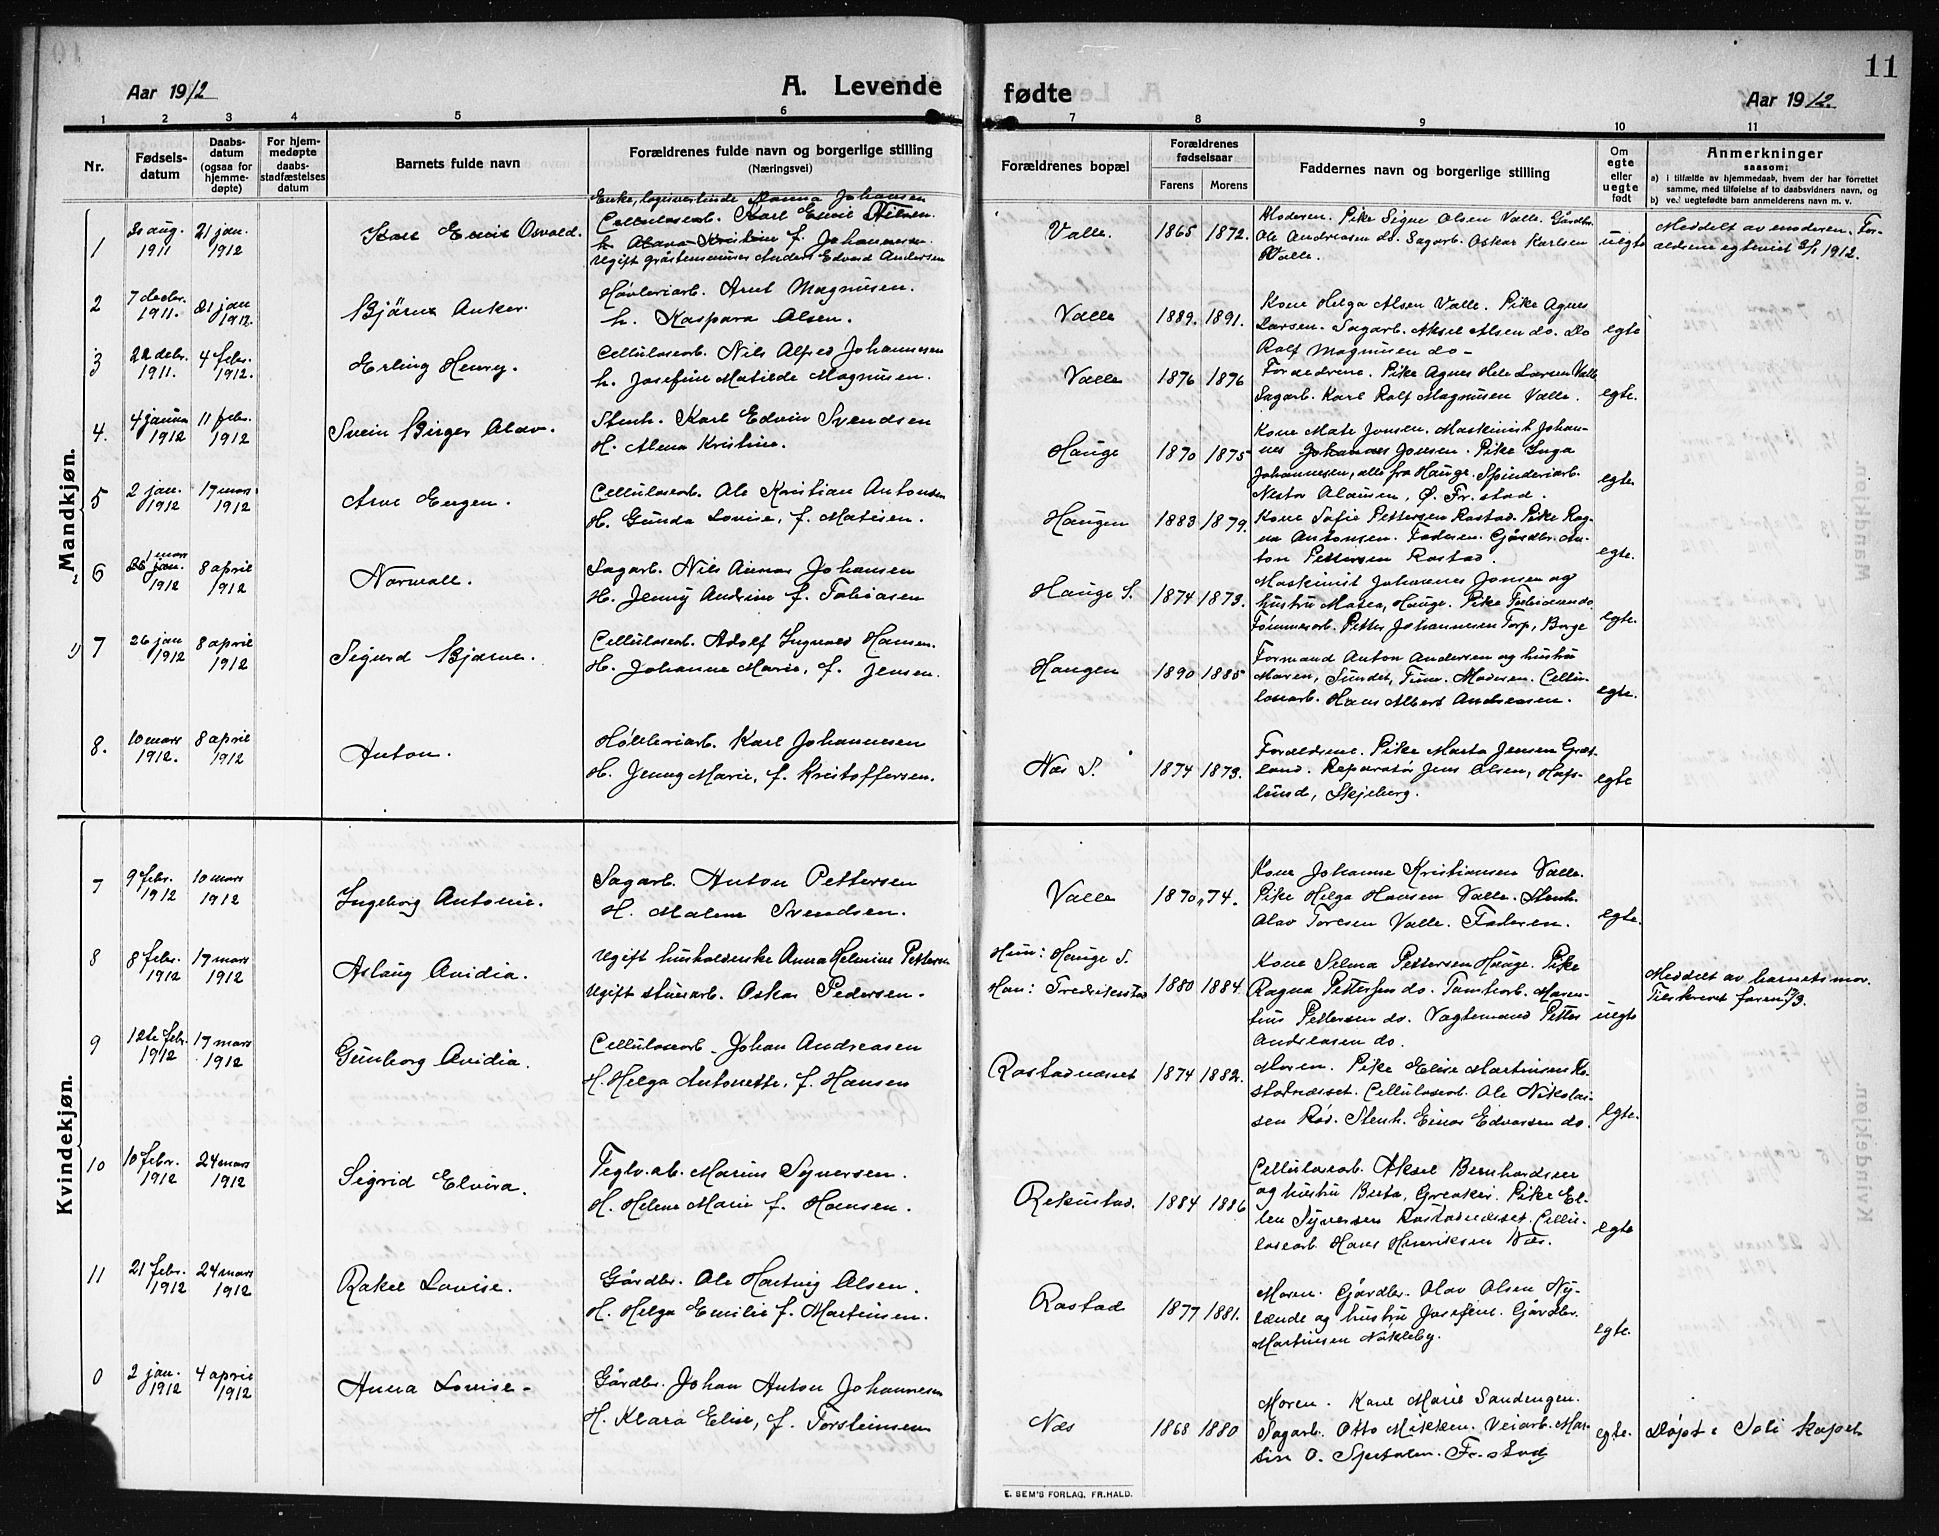 Aar 1912
A. Levende
fødte
Aar 1912.
11
1 2 3 4 5 6 7 8 9 10 11
Nr.
Fødsels-
datum
Daabs-
datum
(ogsaa for
hjemme-
døpte)
For hjem-
medøpte
daabs-
stadfæstelses
datum
Barnets fulde navn
Forældrenes fulde navn og borgerlige stilling
(Næringsvei)
Forældrenes bopæl
Forældrenes
fødselsaar
Farens Morens
Faddernes navn og borgerlige stilling
Om
egte
eller
uegte
født
Anmerkninger
saasom:
a) i tilfælde av hjemmedaab, hvem der har forrettet
samme, med tilføielse af to daabsvidners navn, og
b) ved uegtefødte barn anmelderens navn m. v.
Mandkjøn.
1
20 aug. 1911
21 jan. 1912
Karl Emil Osvald.
Enke, logivertinde Johansen
Cellulosearb. Karl Emil Nilsen.
h. Kristine f. Johannesen
Ugift Anders Edvard Andersen
Valle.
1865 1872.
Moderen. Pike Signe Olsen Valle. Gårdbr.
Ole Andreasen do. Sagarb. Oskar Karlsen
Valle.
uegte
Meddelt av moderen. For-
ældrene egteviet 3/1 1912.
2
7 decbr. 1911.
21 jan 1912.
Bjärne Anker.
Høvleriarb. Arnt Magnusen.
h. Kaspara Olsen.
Valle
1889. 1891.
Kone Helga Olsen Valle. Pike Agnes
Larsen. Sagarb. Aksel Olsen do. Do
Rolf Magnusen do-
egte
3
22 debr. 1911.
4 febr. 1912.
Erling Henry.
Cellulosearb. Nils Alfred Johannesen
h. Josefine Matilde Magnusen.
Valle
1876 1876
Forældrene. Pike Agnes Larsen Valle
Sagarb. Karl Rolf Magnusen Valle.
egte.
4.
4 januar 1912
11 febr. 1912
Svein Birger Olav.
Stenh. Karl Edvin Svendsen
H. Alma Kristine.
Hauge
1870 1875
Kone Mate Jonsen. Maskinist Johan-
nes Johannes Jonsen. Pike Inga
Johannesen, alle fra Hauge. Spinderiarb.
Nestor Olausen, Ø. Fr. stad.
egte.
5
2 jan. 1912
17 mars 1912
Arve Eugen.
Cellulosearb. Ole Kristian Antonsen
H. Gunda Lovise, f. Matisen.
Haugen
1883 1879.
Kone Sofie Pettersen Rostad. Pike Rag-
na Antonsen. Faderen. Gårdbr. An-
ton Pettersen Rostad.
egte.
6
1 mars 1912
8 april 1912
Normall.
Sagarb. Nils Johansen
H. Jenny Andrine f. Tobiasen
Hauge S.
1874 1873.
Maskinist Johannes Jonsen og
hustru Matea, Hauge. Pike
Tømmerarb. Petter Johannesen Torp, Borge
egte.
7
26 jan 1912
8 april 1912
Sigurd Bjarne.
Cellulosearb. Adolf Ingvald Hansen.
H. Johanne Marie, f. Jensen.
Haugen
1890 1885
Formand Anton Andersen og hustru
Maren, Sundet, Tune. Moderen. Cellu-
losearb. Hans Albert Andreasen.
egte.
8.
10 mars 1912.
8 april 1912
Anton.
Høvleriarb. Karl Johannesen
H. Jenny Marie, f. Kristoffersen.
Næs S.
1874 1873.
Forældrene. Pike Marta Jensen Græs-
land. Reparatør Jens Olsen, Hafs-
lund, Skjeberg.
egte
Kvindekjøn.
7
9 febr. 1912
10 mars 1912
Ingeborg Antonie.
Sagarb. Anton Pettersen
H. Malene Svendsen.
Valle
1870, 74.
Kone Johanne Kristiansen Valle.
Pike Helga Hansen Valle. Stenh.
Olav Toresen Valle. Faderen.
egte.
8
8 febr. 1912
17 mars 1912
Aslaug Ovidia.
Ugift husholderske Anna Helmine Pettersen
Ugift stuerarb. Oskar Pedersen.
Hun: Hauge S.
Han: Fredrikstad
1880 1884.
Kone Selma Pettersen Hauge. Pike
Ragna Pettersen do. Tomtearb. Maren-
tius Pettersen do. Vagtemand Petter
Andreasen do.
uegte
Meddelt av barnets mor.
Tilskrevet faren 17/3.
9
12te febr. 1912
17 mars 1912
Gunborg Ovidia.
Cellulosearb. Johan Andreasen
H. Helga Antonette, f. Hansen
Rostadneset
1874 1882.
Moren. Pike Elise Martinsen Ro-
stadneset. Cellulosearb. Ole Nikolai-
sen Rød. Stenh. Einar Edvarsen do.
egte.
10
10 febr. 1912
24 mars 1912
Sigrid Elvira.
Teglv.ab. Marius Syversen.
H. Helene Marie f. Hansen.
Rekustad.
1884 1886
Cellulosearb. Aksel Bernhardsen
og hustru Berta, Greaker. Pike El-
len Syversen Rostadneset. Cellu-
losearb. Hans Henriksen Næs.
egte
11
21 febr. 1912
24 mars 1912
Rakel Lovise.
Gårdbr. Ole Hartvig Olsen.
H. Helga Emilie f. Martinsen.
Rostad
1877 1881.
Moren. Gårdbr. Olav Olsen Ny-
lænde og hustru Josefine. Gårdbr.
Martinsen Nøkleby.
egte.
0
2 jan. 1912
4 april 1912
Anna Lovise-
Gårdbr. Johan Anton Johannesen
H. Klara Elise, f. Torsteinsen
Næs
1868 1880
Moren. Kone Marie Sandengen.
Sagarb. Otto Mikken. Veiarb. Mar-
tin O. Spetalen. Fr.stad
egte.
Døpt i Soli kapel
E. SEM'S FORLAG, FR.HALD.